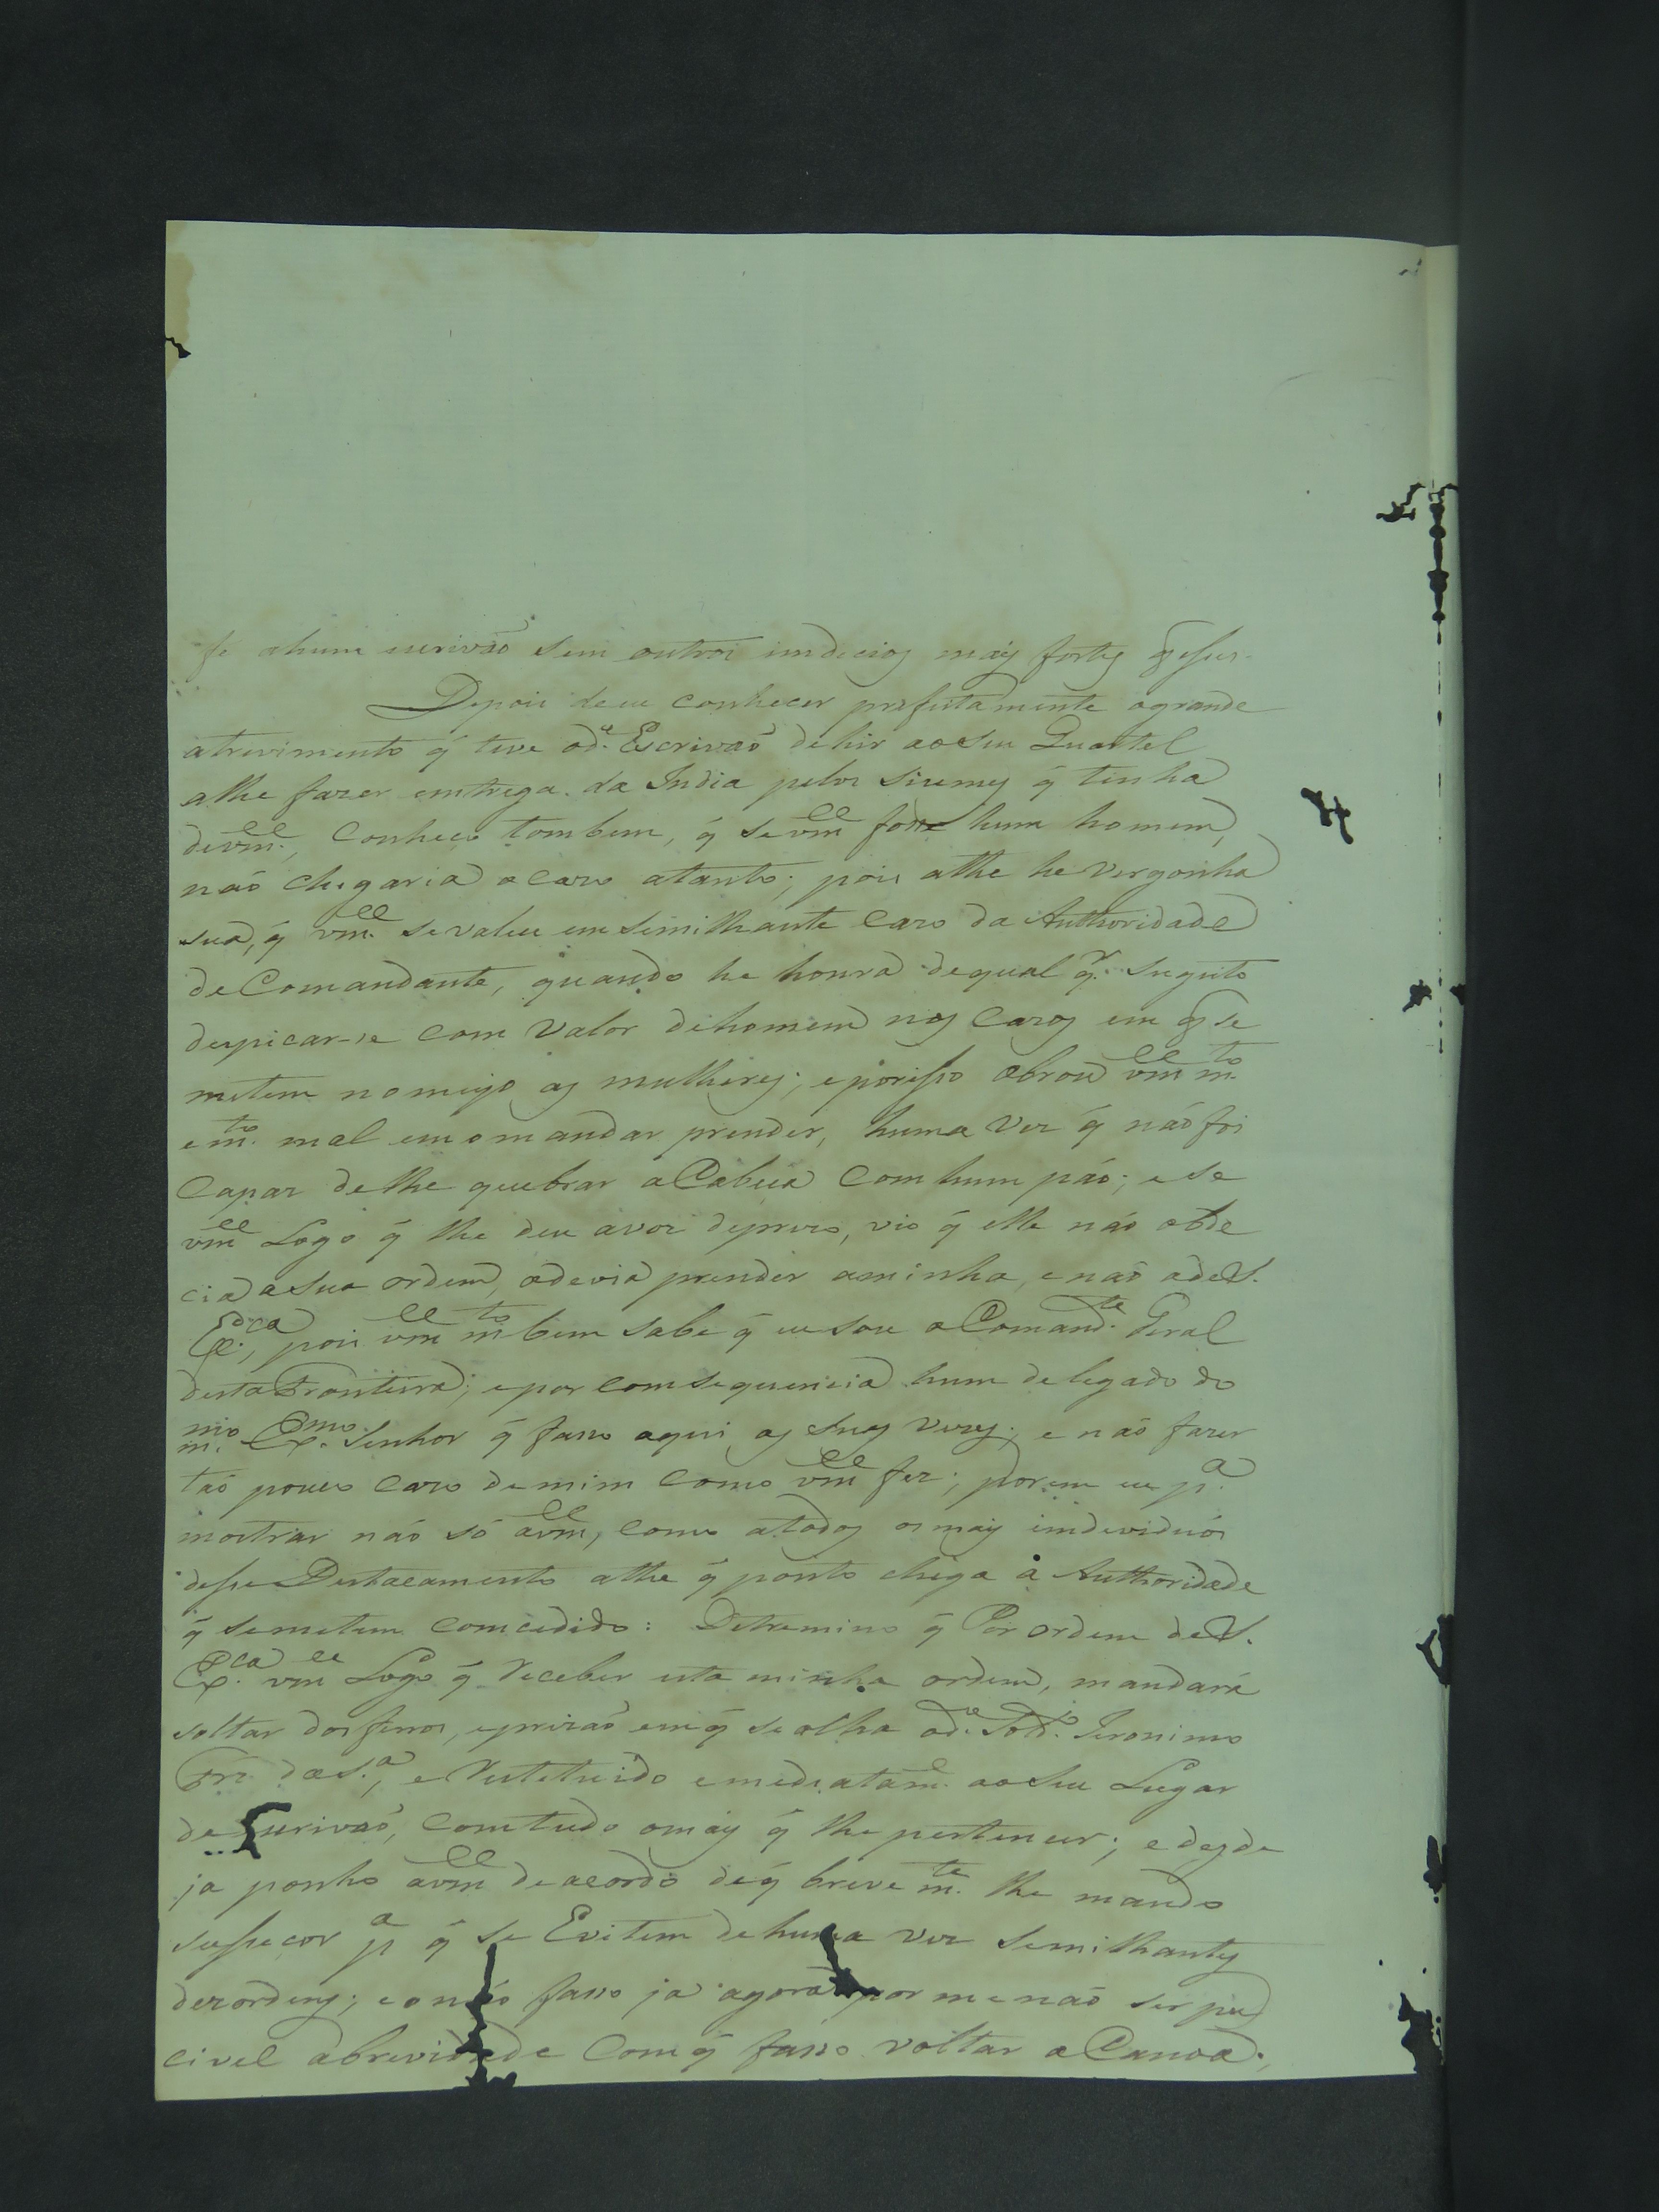 fe ahum escrivaõ sem outros imdicios may fortes q̃ esses.
Depois de eu conhecer prefeitamente ogrande
atrevimento q̃ teve od.e Escrivaõ dehir aoseu Quartel
alhe fazer emtrega da India pelos siumes q̃ tinha
devm.ce, Conheço tombem, q̃ sevm.ce fosse hum homem,
naõ chegaria o cazo atanto; pois athe he vergonha
sua, q̃ vm.ce sevaleu em similhante cazo da Authoridade
de Comandante, quando he honra dequal q.r sugeito
despicar-se com valor dehomem nos cazos em q̃ se
metem nomeyo as mulheres; eporisso obrou vm.ce m.to
em.to mal em omandar prender, huma vez q̃ naõ foi
Capaz delhe quebrar a Cabeça Com hum páo; e se
vm.ce Logo q̃ lhe deu avoz deprezo, vio q̃ elle naõ obde
cia asua ordem, odevia prender aminha, e naõ adeS.
Ex.ca, pois vm.ce m.to bem sabe q̃ eu sou o Comand.te Geral
desta Fronteira; epor comsequencia hum delegado do
m.mo Ex.mo Senhor q̃ fasso aqui as suas vezes; e naõ fazer
taõ pouco cazo demim como vm.ce fez; porem eu p.a
mostrar naõ só avm.ce, como atodos osmay imdividuós
desse Destacamento athe q̃ ponto chega á Authoridade
q̃ semetem comcedido: Detremino q̃ Por ordem deS.
Ex.ca vm.ce Logo q̃ Receber esta minha ordem, mandará
soltar dos ferros, eprizaõ emq̃ se alha od.e Sold.o Jeronimo
daS.a, e Restetuido emediatam.e aoseu Lugar
de Escrivaõ, Comtudo omay q̃ lhe pertencer; e desde
ja ponho avm.ce deacordo deq̃ breve m.te lhe mando
sussecor p.a q̃ se Evitem dehuma vez similhantes
dezordens; e onaõ fasso ja agora por me naõ ser pus
civel abrevidade Comq̃ fasso voltar a Canoa;